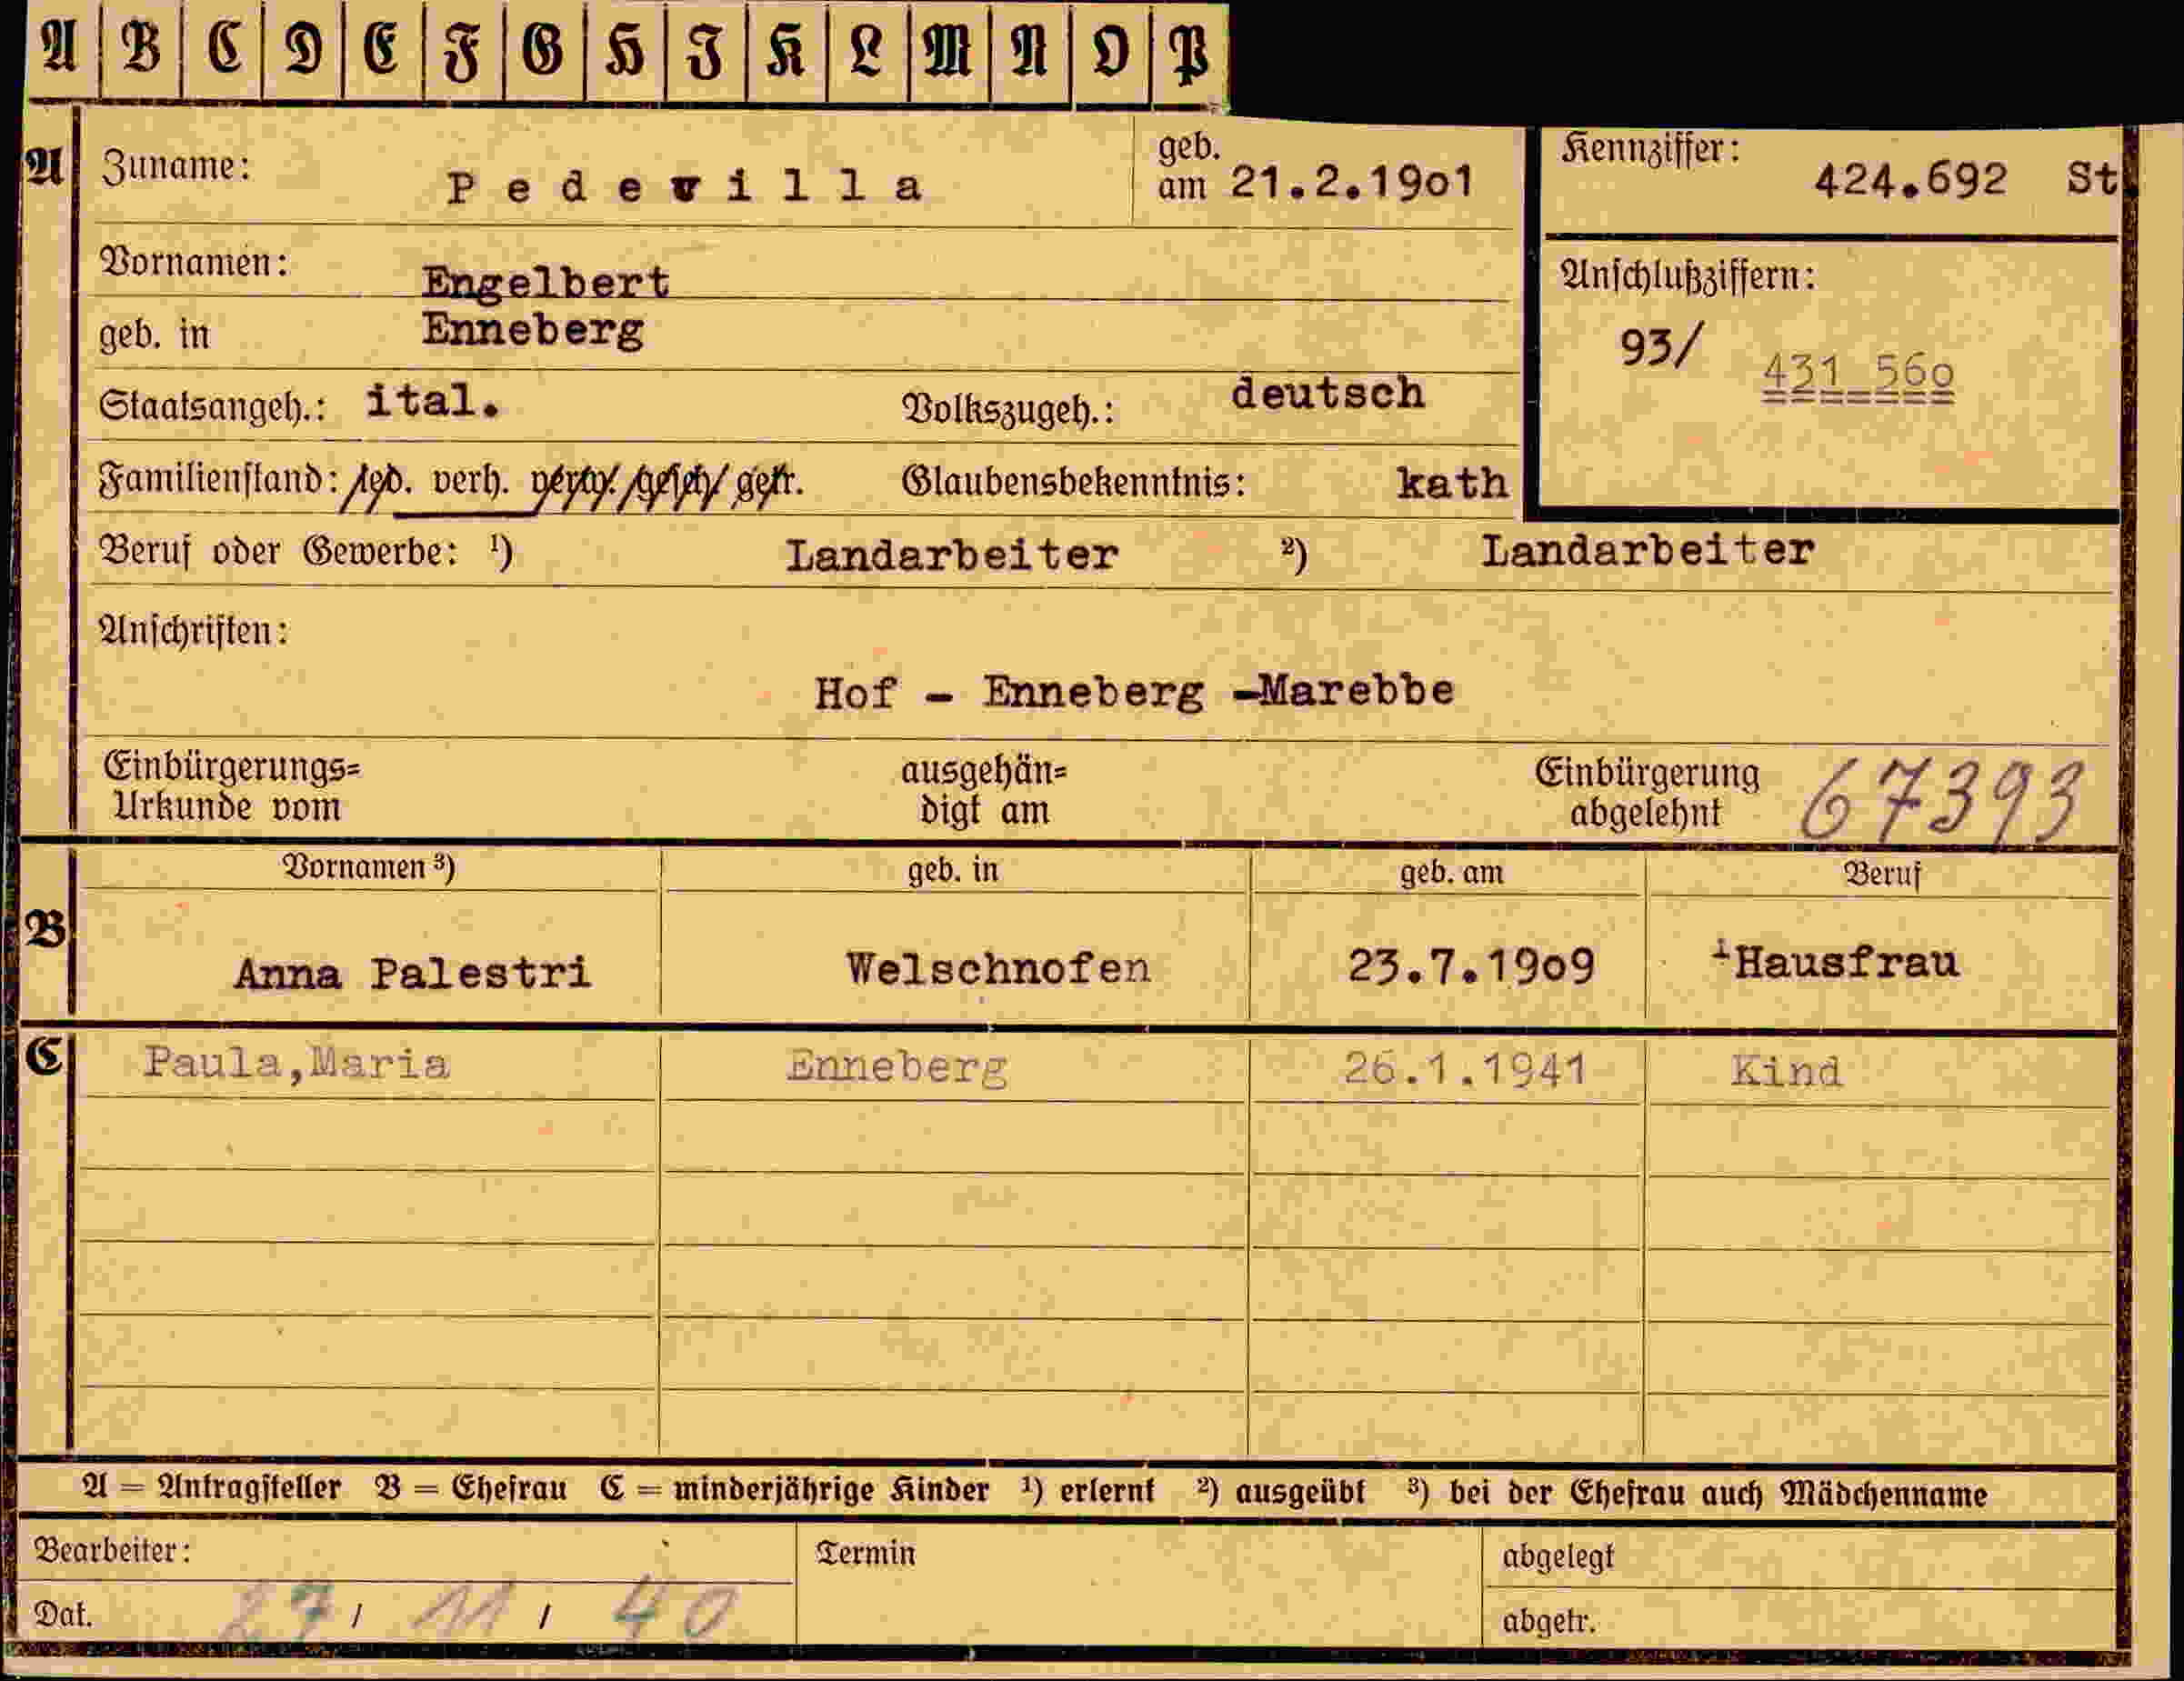 A B C D E F G H I K L M N O P
A Zuname: Pedevilla geb. am 21.2.19o1 Kennziffer: 424.692 St.
Vornamen: Engelbert Anschlußziffern:
geb. in Enneberg 93/ 431 56o
Staatsangeh.: ital. Volkszugeh.: deutsch
Familienstand: led. verh. verw. gesch. getr. Glaubensbekenntnis: kath
Beruf oder Gewerbe: ¹) Landarbeiter ²) Landarbeiter
Anschriften:
Hof - Enneberg -Marebbe
Einbürgerungs= ausgehän= Einbürgerung 67393
Urkunde vom digt am abgelehnt
Vornamen ³) geb. in geb. am Beruf
B Anna Palestri Welschnofen 23.7.19o9 Hausfrau
C Paula,Maria Enneberg 26.1.1941 Kind
A = Antragsteller B = Ehefrau C = minderjährige Kinder ¹) erlernt ²) ausgeübt ³) bei der Ehefrau auch Mädchenname
Bearbeiter: Termin abgelegt
Dat. 27 / 11 / 40 abgetr.